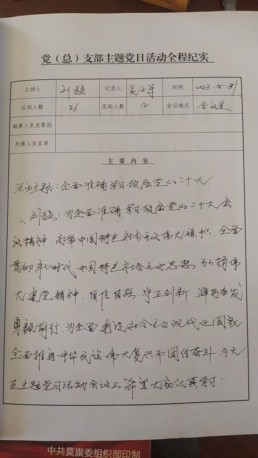 党（总）支部主题党日活动全程纪实
主持人 刘 记录人 时间 2023
应到人数 实到人数 12 会议地点 会议室
缺席人员及原因
列席人员名单
主要内容
活动主题：全面准确学习领会党的二十大
为全面准确学习领会党的二十大会
议精神，高举中国特色社会主义伟大旗帜，全面
贯彻新时代中国特色社会主义思想，弘扬伟
大建党精神，自信自强、守正创新，踔厉奋发
勇毅前行，为全面建设社会主义现代化国家
全面推进中华民族伟大复兴而团结奋斗，今天
在主题党日活动会议上，希望大家认真学习
中共莫旗委组织部印制